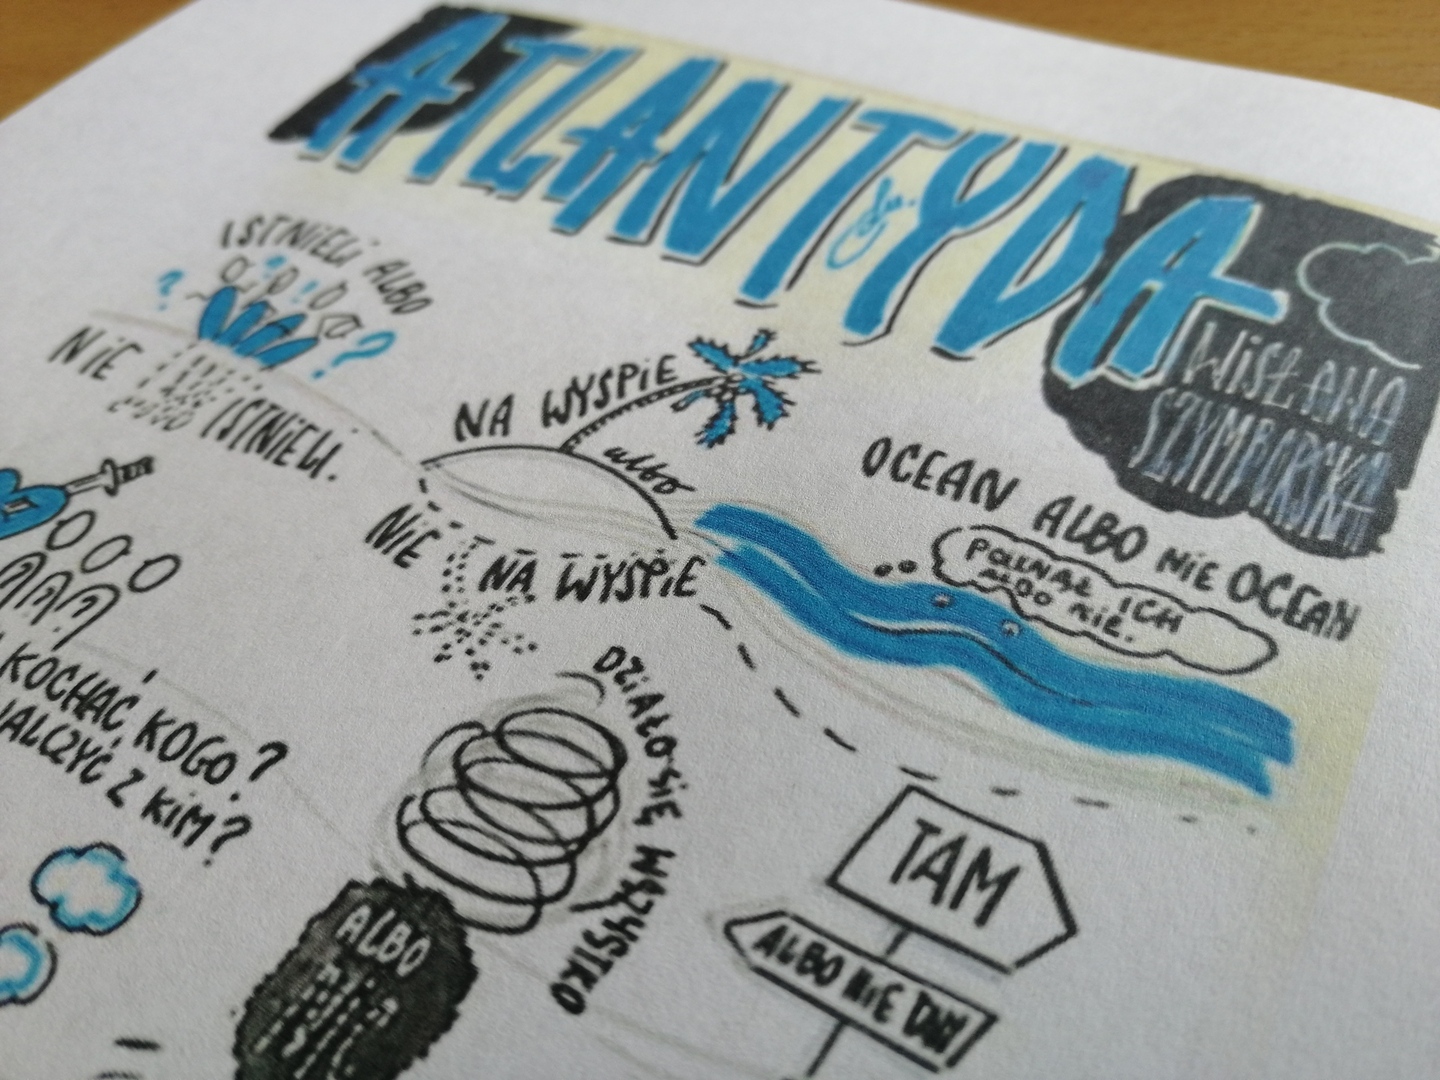 ATLANTYDA
WISŁAWA
SZYMBORSKA
ISTNIELI ALBO
NIE ISTNIELI.
NA WYSPIE
albo
NIE NA WYSPIE
OCEAN ALBO NIE OCEAN
POŁKNĄŁ ICH
ALBO NIE.
KOCHAĆ KOGO?
WALCZYĆ Z KIM?
DZIAŁO SIĘ WSZYSTKO
ALBO
TAM
ALBO NIE